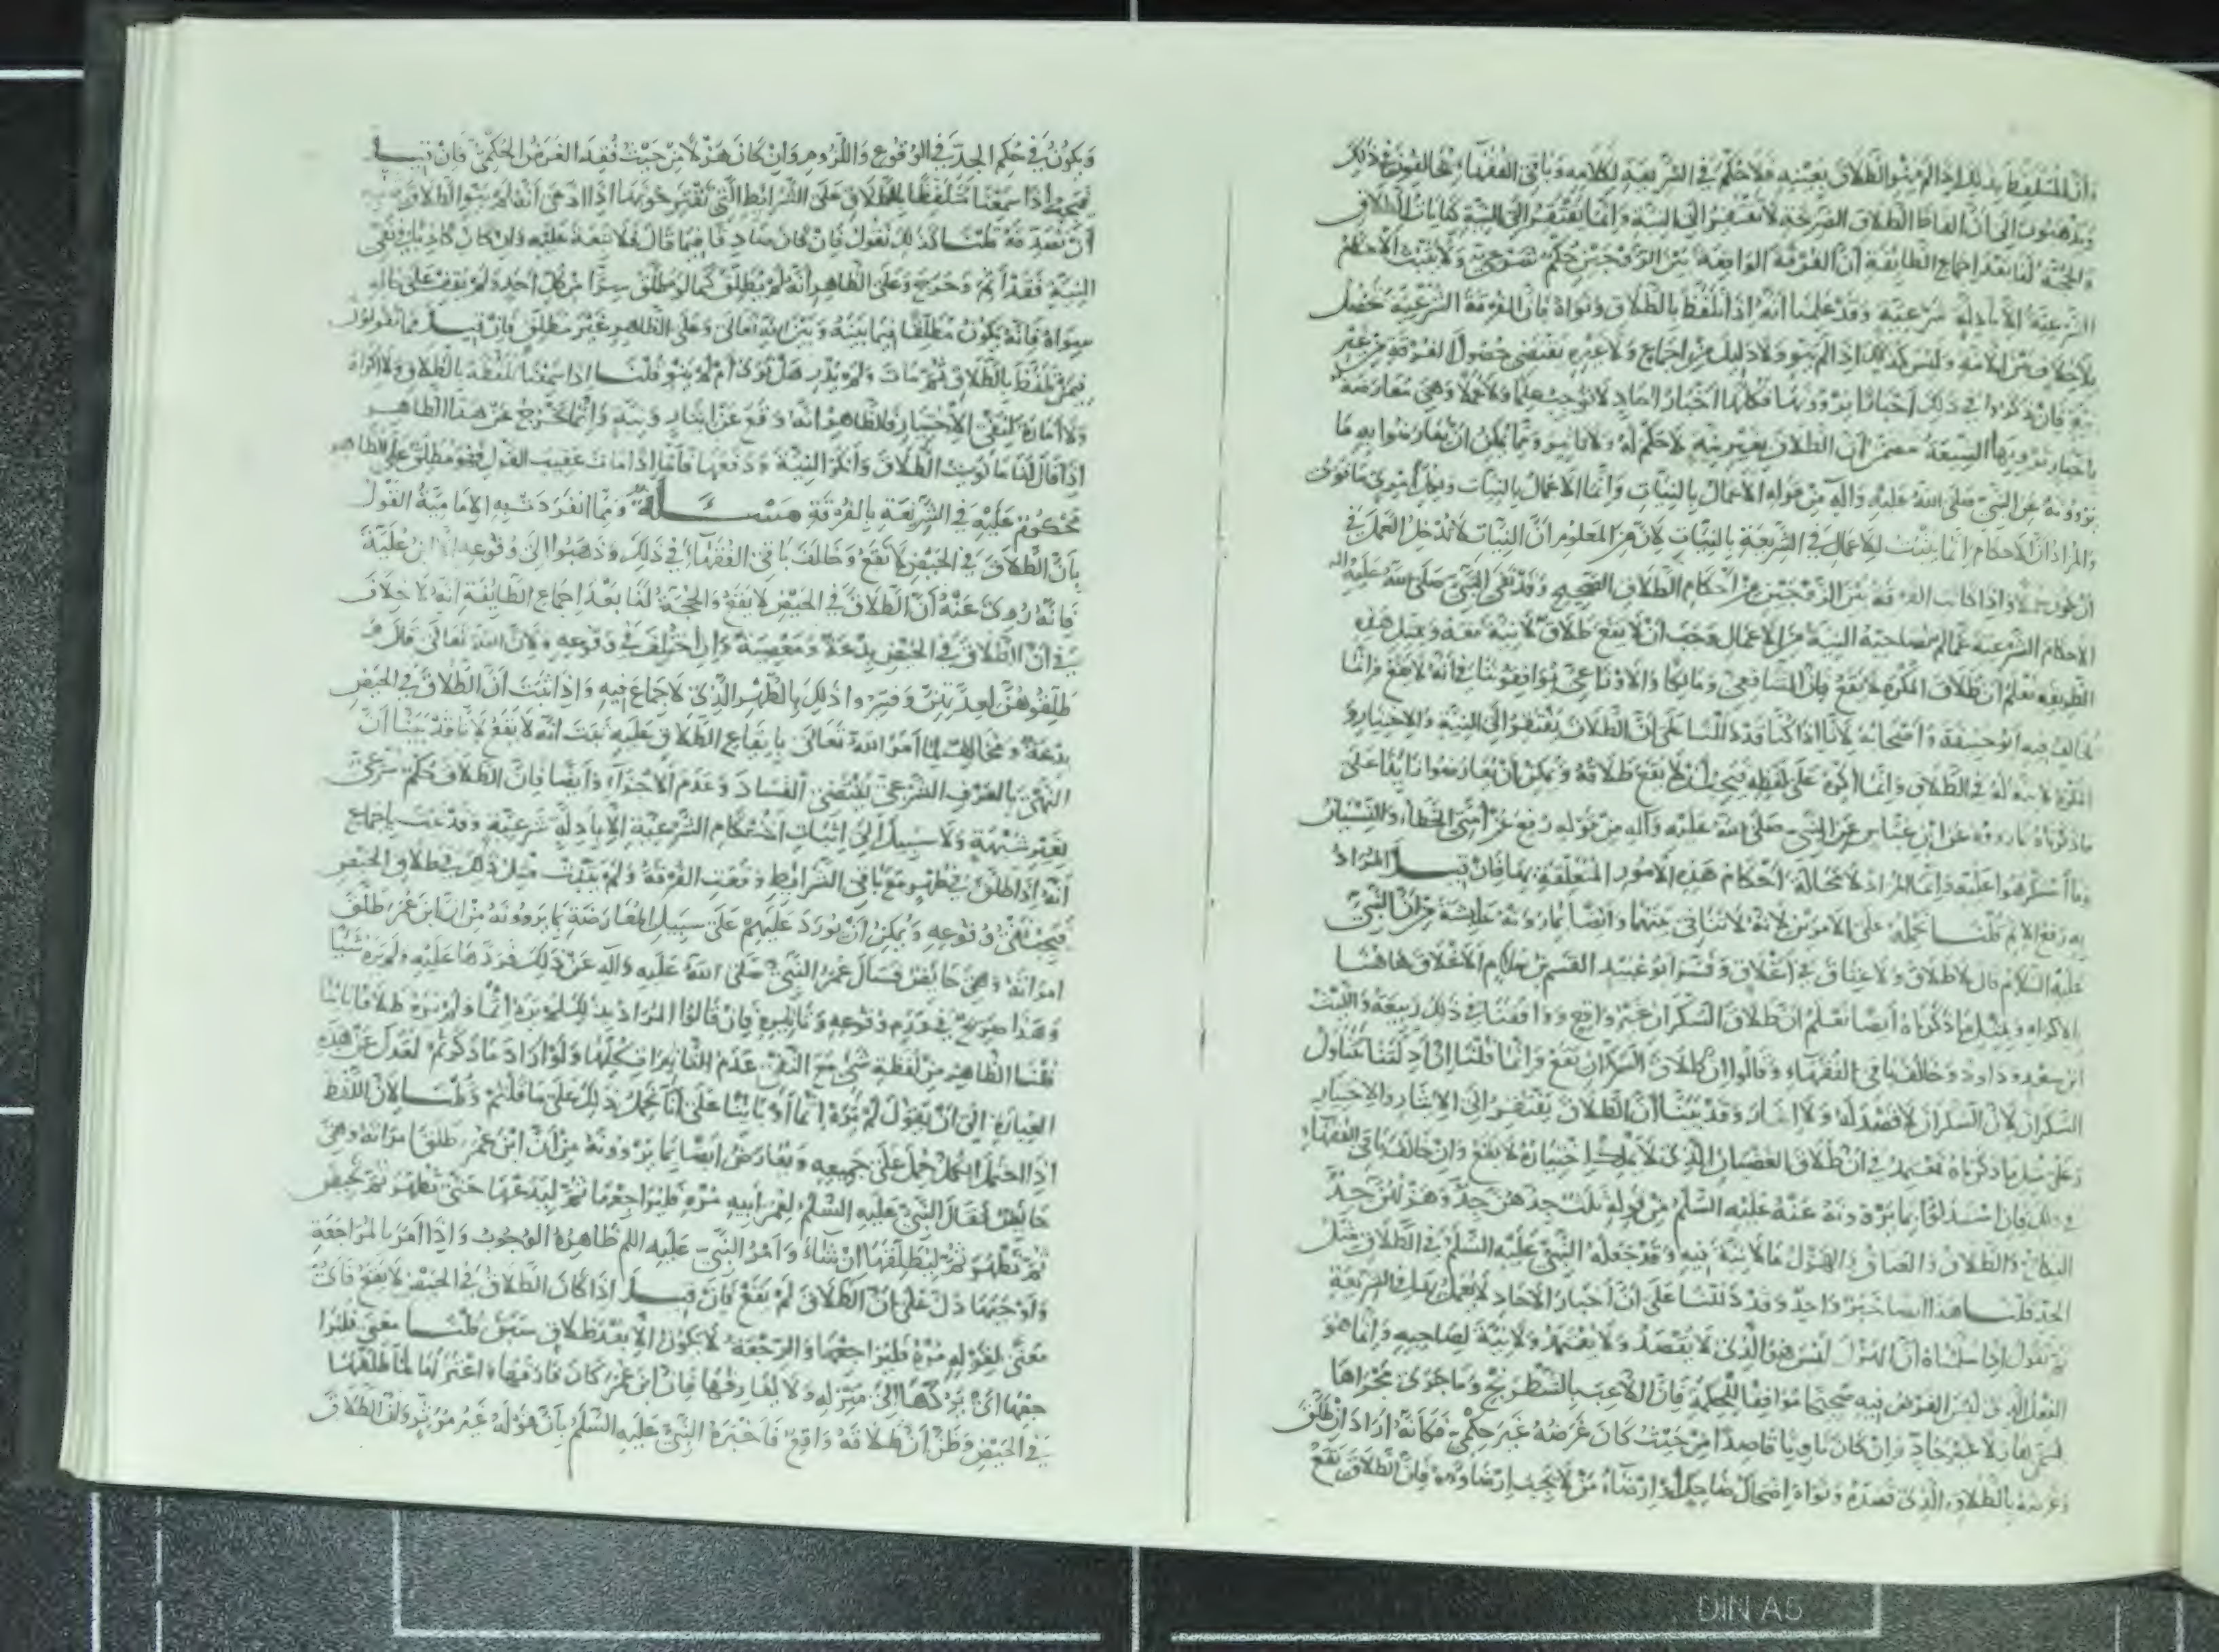 وأن المتلفظ بذلك إذا لم ينو الطلاق بعينه فلا حكم في الشريعة لكلامه وباقي الفقهاء يخالفون في ذلك
ويذهبون إلى أن ألفاظ الطلاق الصريحة لا تفتقر إلى النية وإنما تفتقر إلى النية كنايات الطلاق
والحجة لنا بعد إجماع الطائفة أن الفرقة الواقعة بين الزوجين حكم شرعي ولا تثبت الأحكام
الشرعية إلا بأدلة شرعية وقد علمنا أنه إذا تلفظ بالطلاق ونواه فإن الفرقة الشرعية تحصل
بلا خلاف بين الأمة وليس كذلك إذا لم ينو ولا دليل من إجماع ولا غيره يقتضي حصول الفرقة من غير
نية فإن ذكروا في ذلك أخبارا يروونها فكلها أخبار آحاد لا توجب علما ولا عملا وهي معارضة
بأخبار ترويها الشيعة تتضمن أن الطلاق بغير نية لا حكم له ولا تأثير ومما يمكن أن يعارضوا به ما
يروونه عن النبي صلى الله عليه وآله من قوله الأعمال بالنيات وإنما الأعمال بالنيات ولكل امرئ ما نوى
والمراد أن الأحكام إنما تثبت للأعمال في الشريعة بالنيات لأن من المعلوم أن النيات لا تدخل العمل في
أن يكون عملا وإذا كانت الفرقة بين الزوجين من أحكام الطلاق الصحيح وقد نفى النبي صلى الله عليه وآله
الأحكام الشرعية عما لم تصاحبه النية من الأعمال وجب أن لا يقع طلاق لا نية معه وبمثل هذه
الطريقة نعلم أن طلاق المكره لا يقع فإن الشافعي ومالكا والأوزاعي يوافقوننا في أنه لا يقع وإنما
يخالف فيه أبو حنيفة وأصحابه لأنا إذا كنا قد دللنا على أن الطلاق يفتقر إلى النية والاختيار و
المكره لا نية له في الطلاق وإنما أكره على لفظه فيجب أن لا يقع طلاقه ويمكن أن يعارضوا زائدا على
ما ذكرناه بما رووه عن ابن عباس عن النبي صلى الله عليه وآله من قوله رفع عن أمتي الخطأ والنسيان
وما استكرهوا عليه وإنما المراد لا محالة أحكام هذه الأمور المتعلقة بها فإن قيل المراد
به رفع الإثم قلنا نحمله على الأمرين لأنه لا تنافي بينهما وأيضا بما روته عائشة من أن النبي
عليه السلام قال لا طلاق ولا عتاق في إغلاق وفسر أبو عبيد القسم بن سلام الإغلاق هاهنا
بالإكراه وبمثل ما ذكرناه أيضا نعلم أن طلاق السكران غير واقع ووافقنا في ذلك ربيعة والليث
ابن سعد وداود وخالف باقي الفقهاء وقالوا إن طلاق السكران يقع وإنما قلنا إن أدلتنا تتناول
السكران لأن السكران لا قصد له ولا إيثار وقد بينا أن الطلاق يفتقر إلى الإيثار والاختيار
وعلى مثل ما ذكرناه نعتمد في أن طلاق الغضبان الذي لا يملك اختياره لا يقع وإن خالف باقي الفقهاء
في ذلك فإن استدلوا بما يروونه عنه عليه السلم من قوله ثلث جدهن جد وهزلهن جد
النكاح والطلاق والعتاق والهزل ما لا نية فيه وقد جعله النبي عليه السلم في الطلاق مثل
الجد قلنا هذا أيضا خبر واحد وقد دللنا على أن أخبار الآحاد لا يعمل بها في الشريعة
ثم نقول إذا سلمناه أن الهزل ليس هو الذي لا يقصد ولا يعتمد ولا نية لصاحبه وإنما هو
الفعل الذي ليس الغرض فيه صحيحا موافقا للحكمة فإن اللاعب بالشطرنج وما جرى مجراها
يسمى هازلا غير جاد وإن كان ناويا قاصدا من حيث كان غرضه غير حكمي فكأنه أراد أن من طلق
وغرضه بالطلاق الذي قصده ونواه إضحاك ضاحك أو إرضاء من لا يجب إرضاؤه فإن الطلاق يقع
ويكون في حكم الجد في الوقوع واللزوم وإن كان هزلا من حيث فقد الغرض الحكمي فإن قيل
فيجب إذا سمعنا متلفظا بالطلاق على الشرائط التي تقترحونها إذا ادعى أنه لم ينو الطلاق
أن نصدقه قلنا كذلك نقول فإن كان صادقا فيما قال فلا تبعة عليه وإن كان كاذبا في نفي
النية فقد أثم وحرج وعلى الظاهر أنه لم يطلق كما لو طلق سرا من كل أحد ولم يقف على حاله
سواه فإنه يكون مطلقا فيما بينه وبين الله تعالى وعلى الظاهر غير مطلق فإن قيل فما تقولون
فيمن تلفظ بالطلاق ثم مات ولم يدر هل نوى أم لم ينو قلنا إذا سمعنا تلفظه بالطلاق ولا إكراه
ولا أمارة لنفي الاختيار فالظاهر أنه وقع عن إيثار ونية وإنما يخرج عن هذا الظاهر
إذا قال لنا ما نويت الطلاق وأنكر النية ودفعها فأما إذا مات عقيب القول فهو مطلق على الظاهر
محكوم عليه في الشريعة بالفرقة مسئلة ومما انفردت به الإمامية القول
بأن الطلاق في الحيض لا يقع وخالف باقي الفقهاء في ذلك وذهبوا إلى وقوعه إلا ابن علية
فإنه روي عنه أن الطلاق في الحيض لا يقع والحجة لنا بعد إجماع الطائفة أنه لا خلاف
في أن الطلاق في الحيض بدعة ومعصية وإن اختلف في وقوعه ولأن الله تعالى قال
فطلقوهن لعدتهن وفسروا ذلك بالطهر الذي لا جماع فيه وإذا ثبت أن الطلاق في الحيض
بدعة ومخالف لما أمر الله تعالى بإيقاع الطلاق عليه ثبت أنه لا يقع لأنا قد بينا أن
النهي بالعرف الشرعي يقتضي الفساد وعدم الإجزاء وأيضا فإن الطلاق حكم شرعي
بغير شبهة ولا سبيل إلى إثبات الأحكام الشرعية إلا بأدلة شرعية وقد ثبت بإجماع
أنه إذا طلق في طهر مع باقي الشرائط وقعت الفرقة ولم يثبت مثل ذلك في طلاق الحيض
فيجب نفي وقوعه ويمكن أن نورد عليهم على سبيل المعارضة بما يروونه من أن ابن عمر طلق
امرأته وهي حائض فسأل عمر النبي صلى الله عليه وآله عن ذلك فردها عليه ولم يره شيئا
وهذا صريح في عدم وقوعه وتأثيره فإن قالوا المراد بذلك لم يره إثما ولم يره طلاقا بائنا
قلنا الظاهر من لفظة شيء مع النفي عدم التأثيرات كلها ولو أراد ما ذكرتم لعدل عن هذه
العبارة إلى أن يقول لم يره إثما أو بائنا على أنا نحمل ذلك على ما قلتم وقلنا لأن اللفظ
إذا احتمل الكل حمل على جميعه ويعارض أيضا بما يروونه من أن ابن عمر طلق امرأته وهي
حائض فقال النبي عليه السلم لعمر أبيه مره فليراجعها ثم ليدعها حتى تطهر ثم تحيض
ثم تطهر ثم ليطلقها إن شاء وأمر النبي عليه السلم ظاهره الوجوب وإذا أمر بالمراجعة
وأوجبها دل على أن الطلاق لم يقع فإن قيل إذا كان الطلاق في الحيض لا يقع فأي
معنى لقوله مره فليراجعها والرجعة لا تكون إلا بعد طلاق سبق قلنا معنى فليرا
جعها أي يردها إلى منزله ولا يفارقها فإن ابن عمر كان فارقها واعتزلها لما طلقها
في الحيض وظن أن طلاقه واقع فأخبره النبي عليه السلم بأن قوله غير مؤثر وأن الطلاق